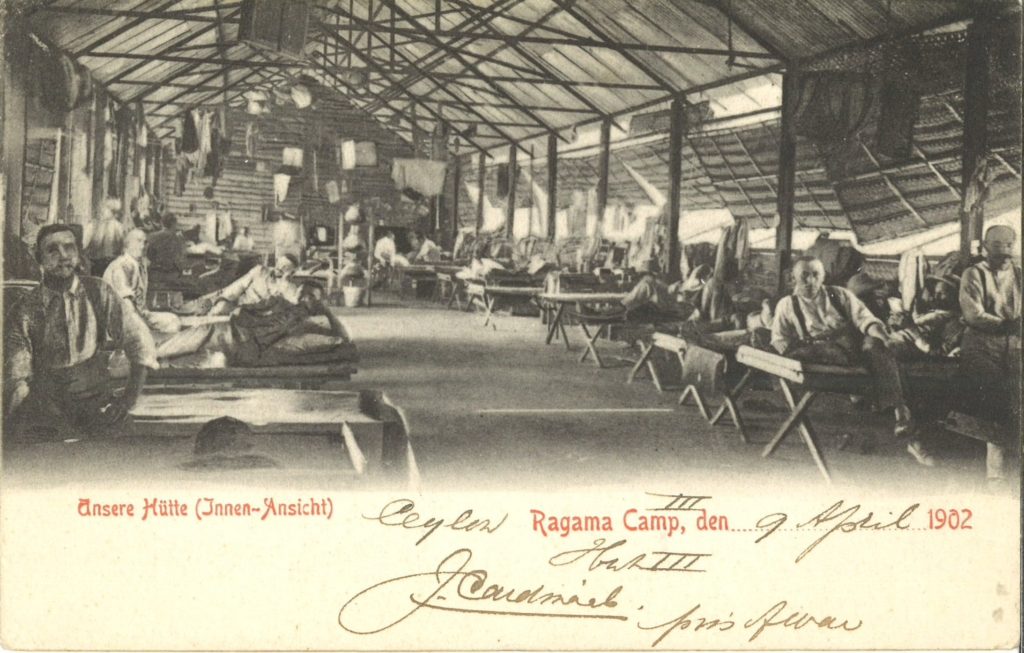 III
Unsere Hütte (Innen-Ansicht) Ceylon Ragama Camp, den 9 April 1902
Hut III
J.